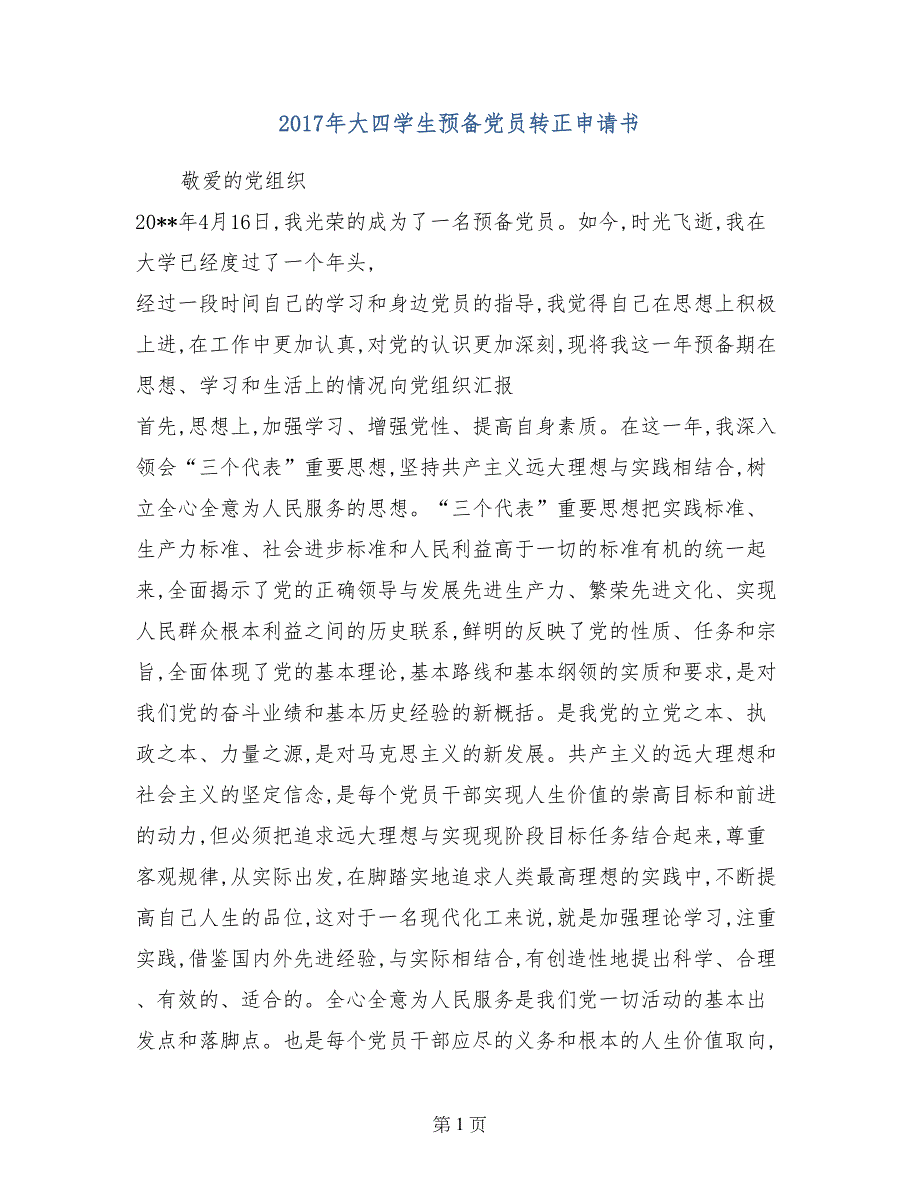 2017年大四学生预备党员转正申请书
敬爱的党组织
20**年4月16日,我光荣的成为了一名预备党员。如今,时光飞逝,我在
大学已经度过了一个年头,
经过一段时间自己的学习和身边党员的指导,我觉得自己在思想上积极
上进,在工作中更加认真,对党的认识更加深刻,现将我这一年预备期在
思想、学习和生活上的情况向党组织汇报
首先,思想上,加强学习、增强党性、提高自身素质。在这一年,我深入
领会“三个代表”重要思想,坚持共产主义远大理想与实践相结合,树
立全心全意为人民服务的思想。“三个代表”重要思想把实践标准、
生产力标准、社会进步标准和人民利益高于一切的标准有机的统一起
来,全面揭示了党的正确领导与发展先进生产力、繁荣先进文化、实现
人民群众根本利益之间的历史联系,鲜明的反映了党的性质、任务和宗
旨,全面体现了党的基本理论,基本路线和基本纲领的实质和要求,是对
我们党的奋斗业绩和基本历史经验的新概括。是我党的立党之本、执
政之本、力量之源,是对马克思主义的新发展。共产主义的远大理想和
社会主义的坚定信念,是每个党员干部实现人生价值的崇高目标和前进
的动力,但必须把追求远大理想与实现现阶段目标任务结合起来,尊重
客观规律,从实际出发,在脚踏实地追求人类最高理想的实践中,不断提
高自己人生的品位,这对于一名现代化工来说,就是加强理论学习,注重
实践,借鉴国内外先进经验,与实际相结合,有创造性地提出科学、合理
、有效的、适合的。全心全意为人民服务是我们党一切活动的基本出
发点和落脚点。也是每个党员干部应尽的义务和根本的人生价值取向,
第 1 页